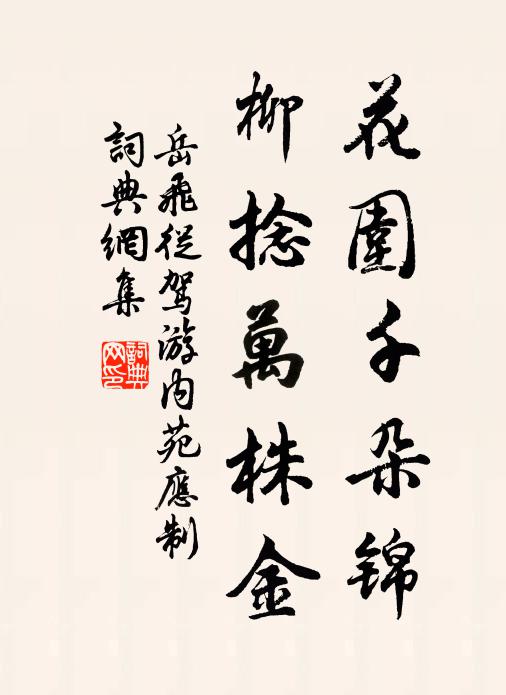 花圍千朵錦
柳捻萬株金
岳飛從駕游内苑應制
詞典網集
詞典網印